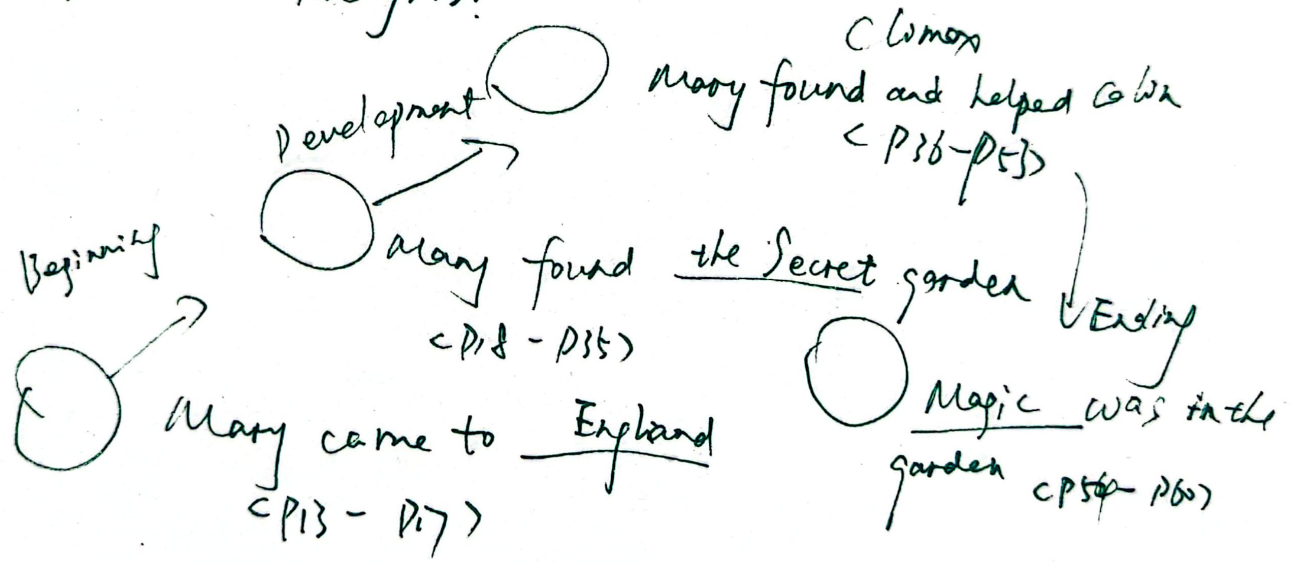 Climax
Mary found and helped Colin
<P36-P53>
Development
Mary found the Secret garden
<P18-P35>
Beginning
Mary came to England
<P13-P17>
Ending
Magic was in the
garden <P54-P60>